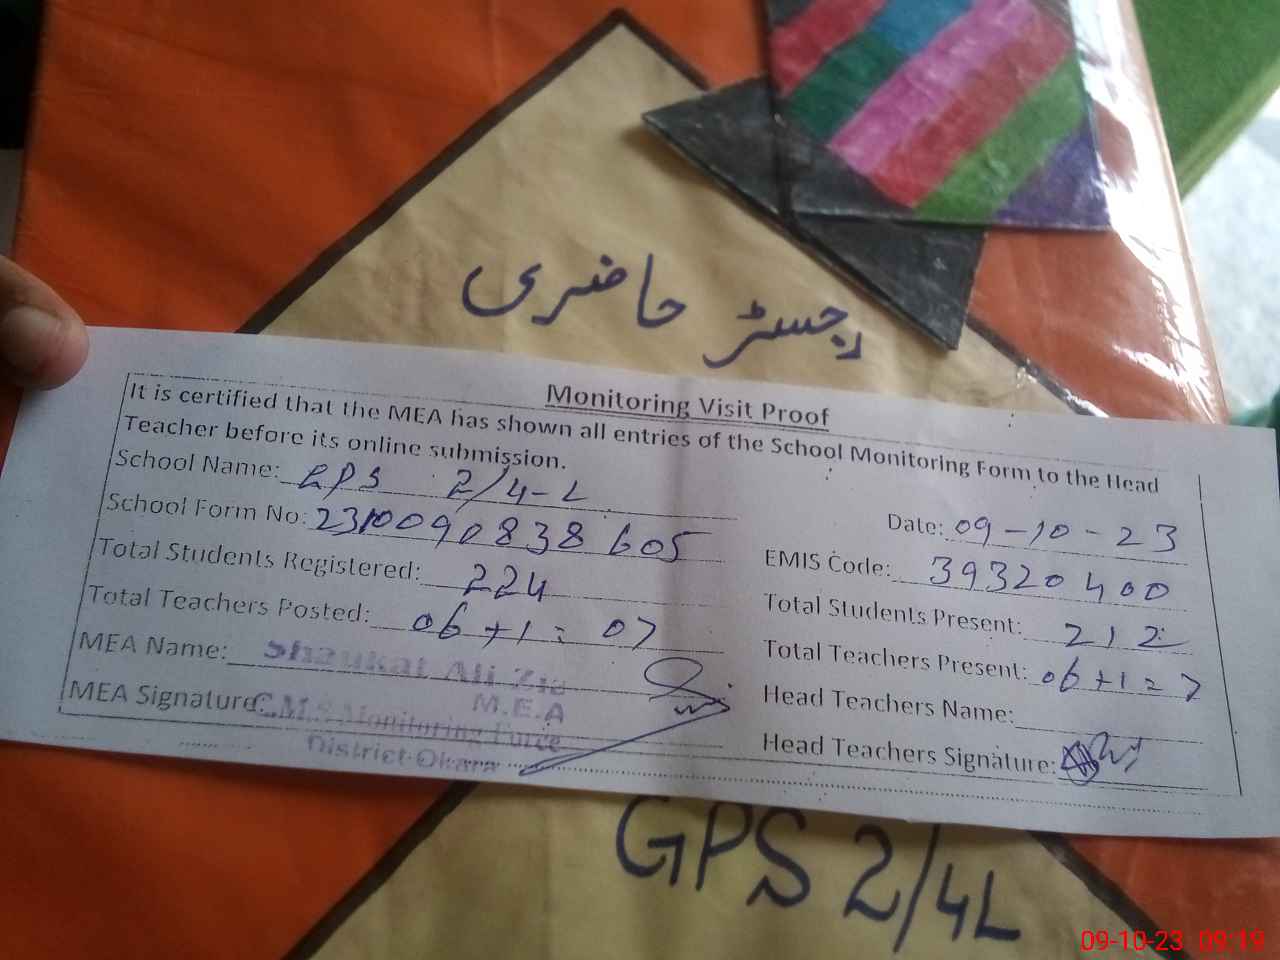 رجسٹر حاضری
Monitoring Visit Proof
It is certified that the MEA has shown all entries of the School Monitoring Form to the Head
Teacher before its online submission.
School Name: GPS 2/4-L
Date: 09-10-23
School Form No: 2310090838605
EMIS Code: 39320400
Total Students Registered: 224
Total Students Present: 212
Total Teachers Posted: 06+1= 07
Total Teachers Present: 06+1=7
MEA Name: Shaukat Ali Zia
M.E.A
Head Teachers Name:
MEA Signature: C.M.S Monitoring Force
District Okara
Head Teachers Signature:
GPS 2/4L
09-10-23 09:19